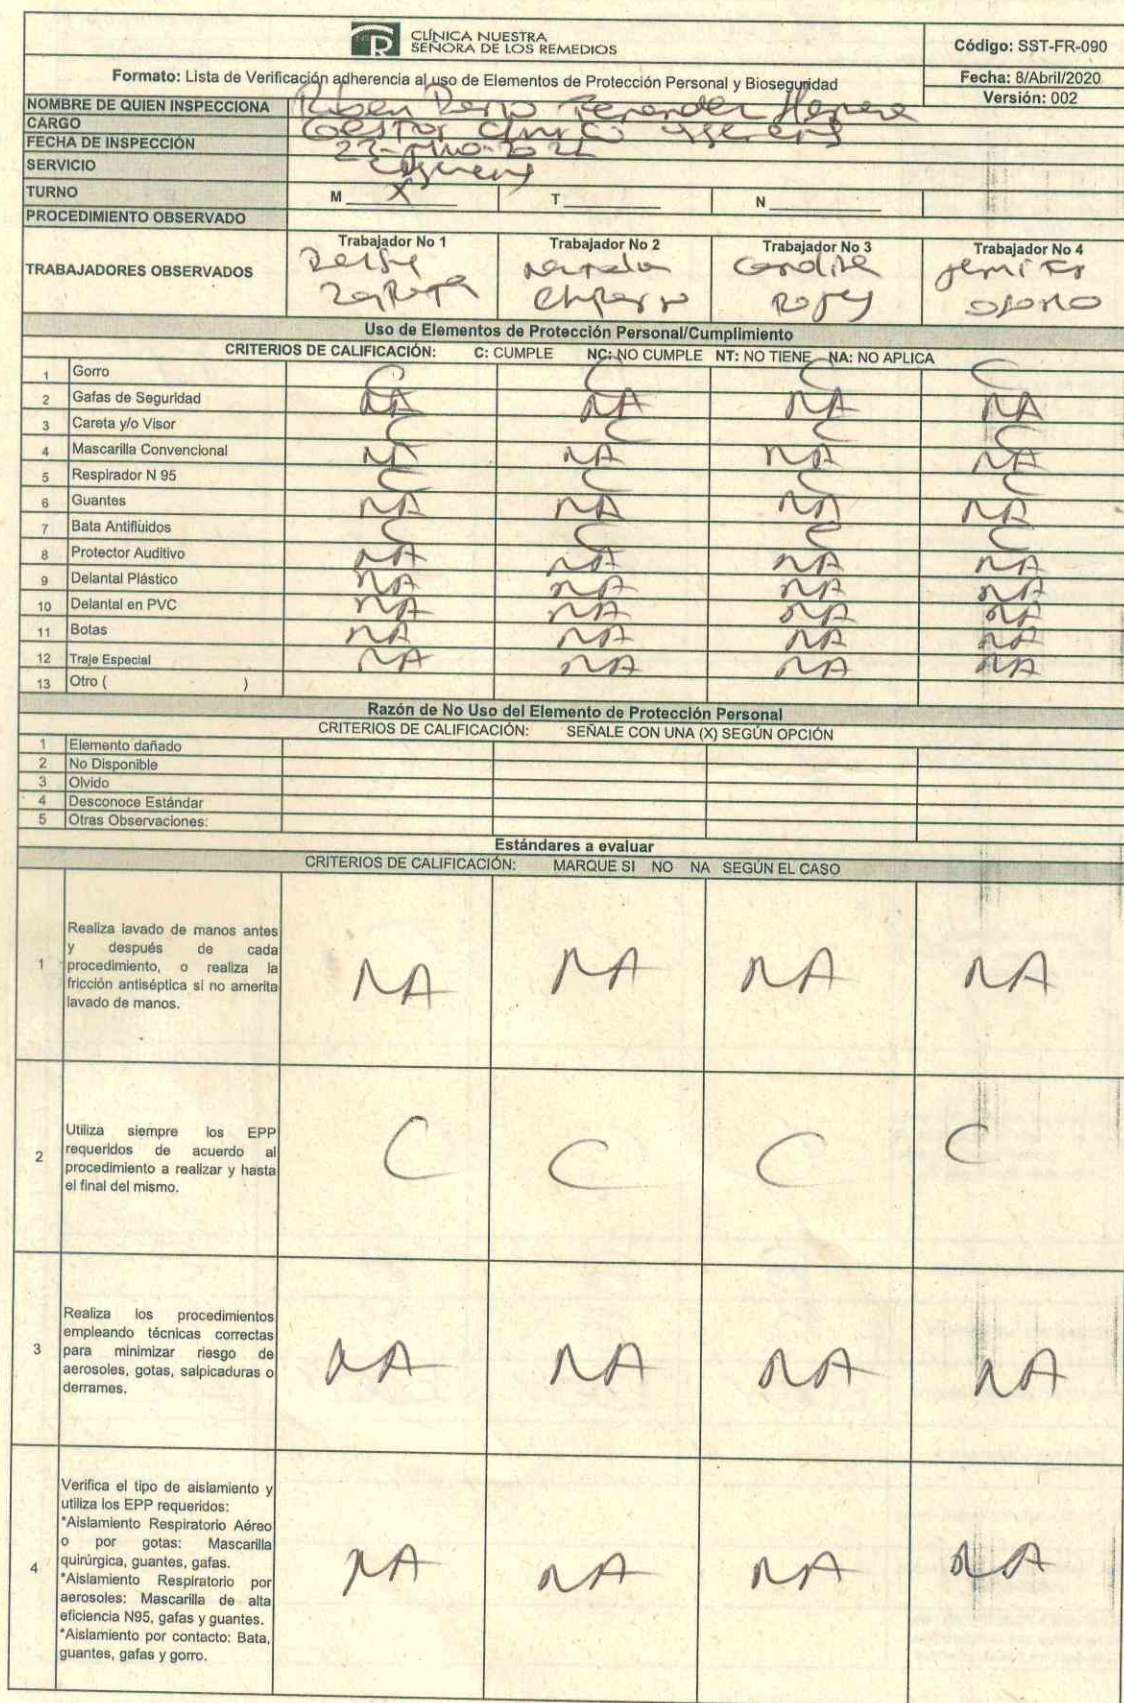 CLÍNICA NUESTRA
SEÑORA DE LOS REMEDIOS
Código: SST-FR-090
Formato: Lista de Verificación adherencia al uso de Elementos de Protección Personal y Bioseguridad
Fecha: 8/Abril/2020
Versión: 002
NOMBRE DE QUIEN INSPECCIONA Ruben Dario
CARGO Gestor
FECHA DE INSPECCIÓN
SERVICIO
TURNO M X T N
PROCEDIMIENTO OBSERVADO
TRABAJADORES OBSERVADOS
Trabajador No 1 Trabajador No 2 Trabajador No 3 Trabajador No 4
Uso de Elementos de Protección Personal/Cumplimiento
CRITERIOS DE CALIFICACIÓN: C: CUMPLE NC: NO CUMPLE NT: NO TIENE NA: NO APLICA
1 Gorro C C C C
2 Gafas de Seguridad NA NA NA NA
3 Careta y/o Visor C C C C
4 Mascarilla Convencional NA NA NA NA
5 Respirador N 95 C C C C
6 Guantes NA NA NA NA
7 Bata Antifluidos C C C C
8 Protector Auditivo NA NA NA NA
9 Delantal Plástico NA NA NA NA
10 Delantal en PVC NA NA NA NA
11 Botas NA NA NA NA
12 Traje Especial NA NA NA NA
13 Otro ( )
Razón de No Uso del Elemento de Protección Personal
CRITERIOS DE CALIFICACIÓN: SEÑALE CON UNA (X) SEGÚN OPCIÓN
1 Elemento dañado
2 No Disponible
3 Olvido
4 Desconoce Estándar
5 Otras Observaciones:
Estándares a evaluar
CRITERIOS DE CALIFICACIÓN: MARQUE SI NO NA SEGÚN EL CASO
1
Realiza lavado de manos antes
y después de cada
procedimiento, o realiza la
fricción antiséptica si no amerita
lavado de manos.
NA NA NA NA
2
Utiliza siempre los EPP
requeridos de acuerdo al
procedimiento a realizar y hasta
el final del mismo.
C C C C
3
Realiza los procedimientos
empleando técnicas correctas
para minimizar riesgo de
aerosoles, gotas, salpicaduras o
derrames.
NA NA NA NA
4
Verifica el tipo de aislamiento y
utiliza los EPP requeridos:
*Aislamiento Respiratorio Aéreo
o por gotas: Mascarilla
quirúrgica, guantes, gafas.
*Aislamiento Respiratorio por
aerosoles: Mascarilla de alta
eficiencia N95, gafas y guantes.
*Aislamiento por contacto: Bata,
guantes, gafas y gorro.
NA NA NA NA